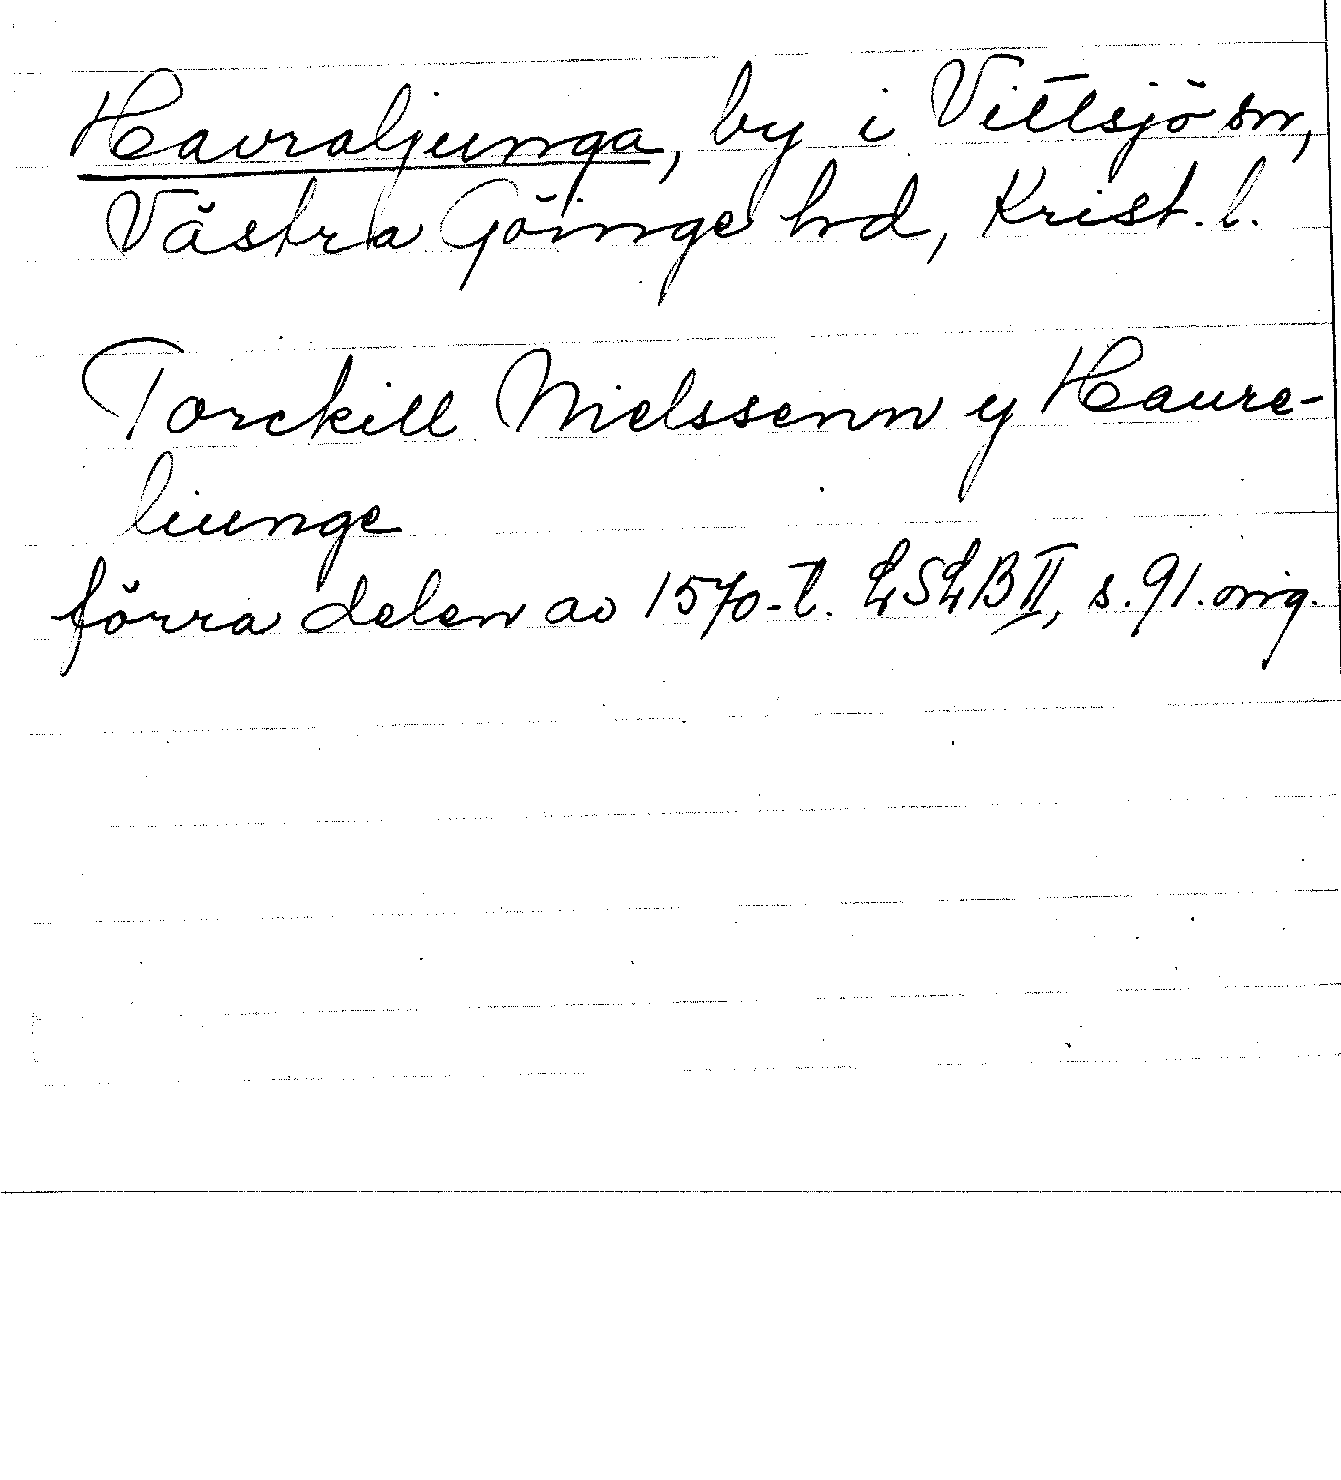 Havraljunga, by i Vittsjö sn,
Västra Göinge hd, Krist. l.
Torckill Nielssenn y Haure-
liunge
förra delen av 1570-t. LSLB II, s. 91. orig.